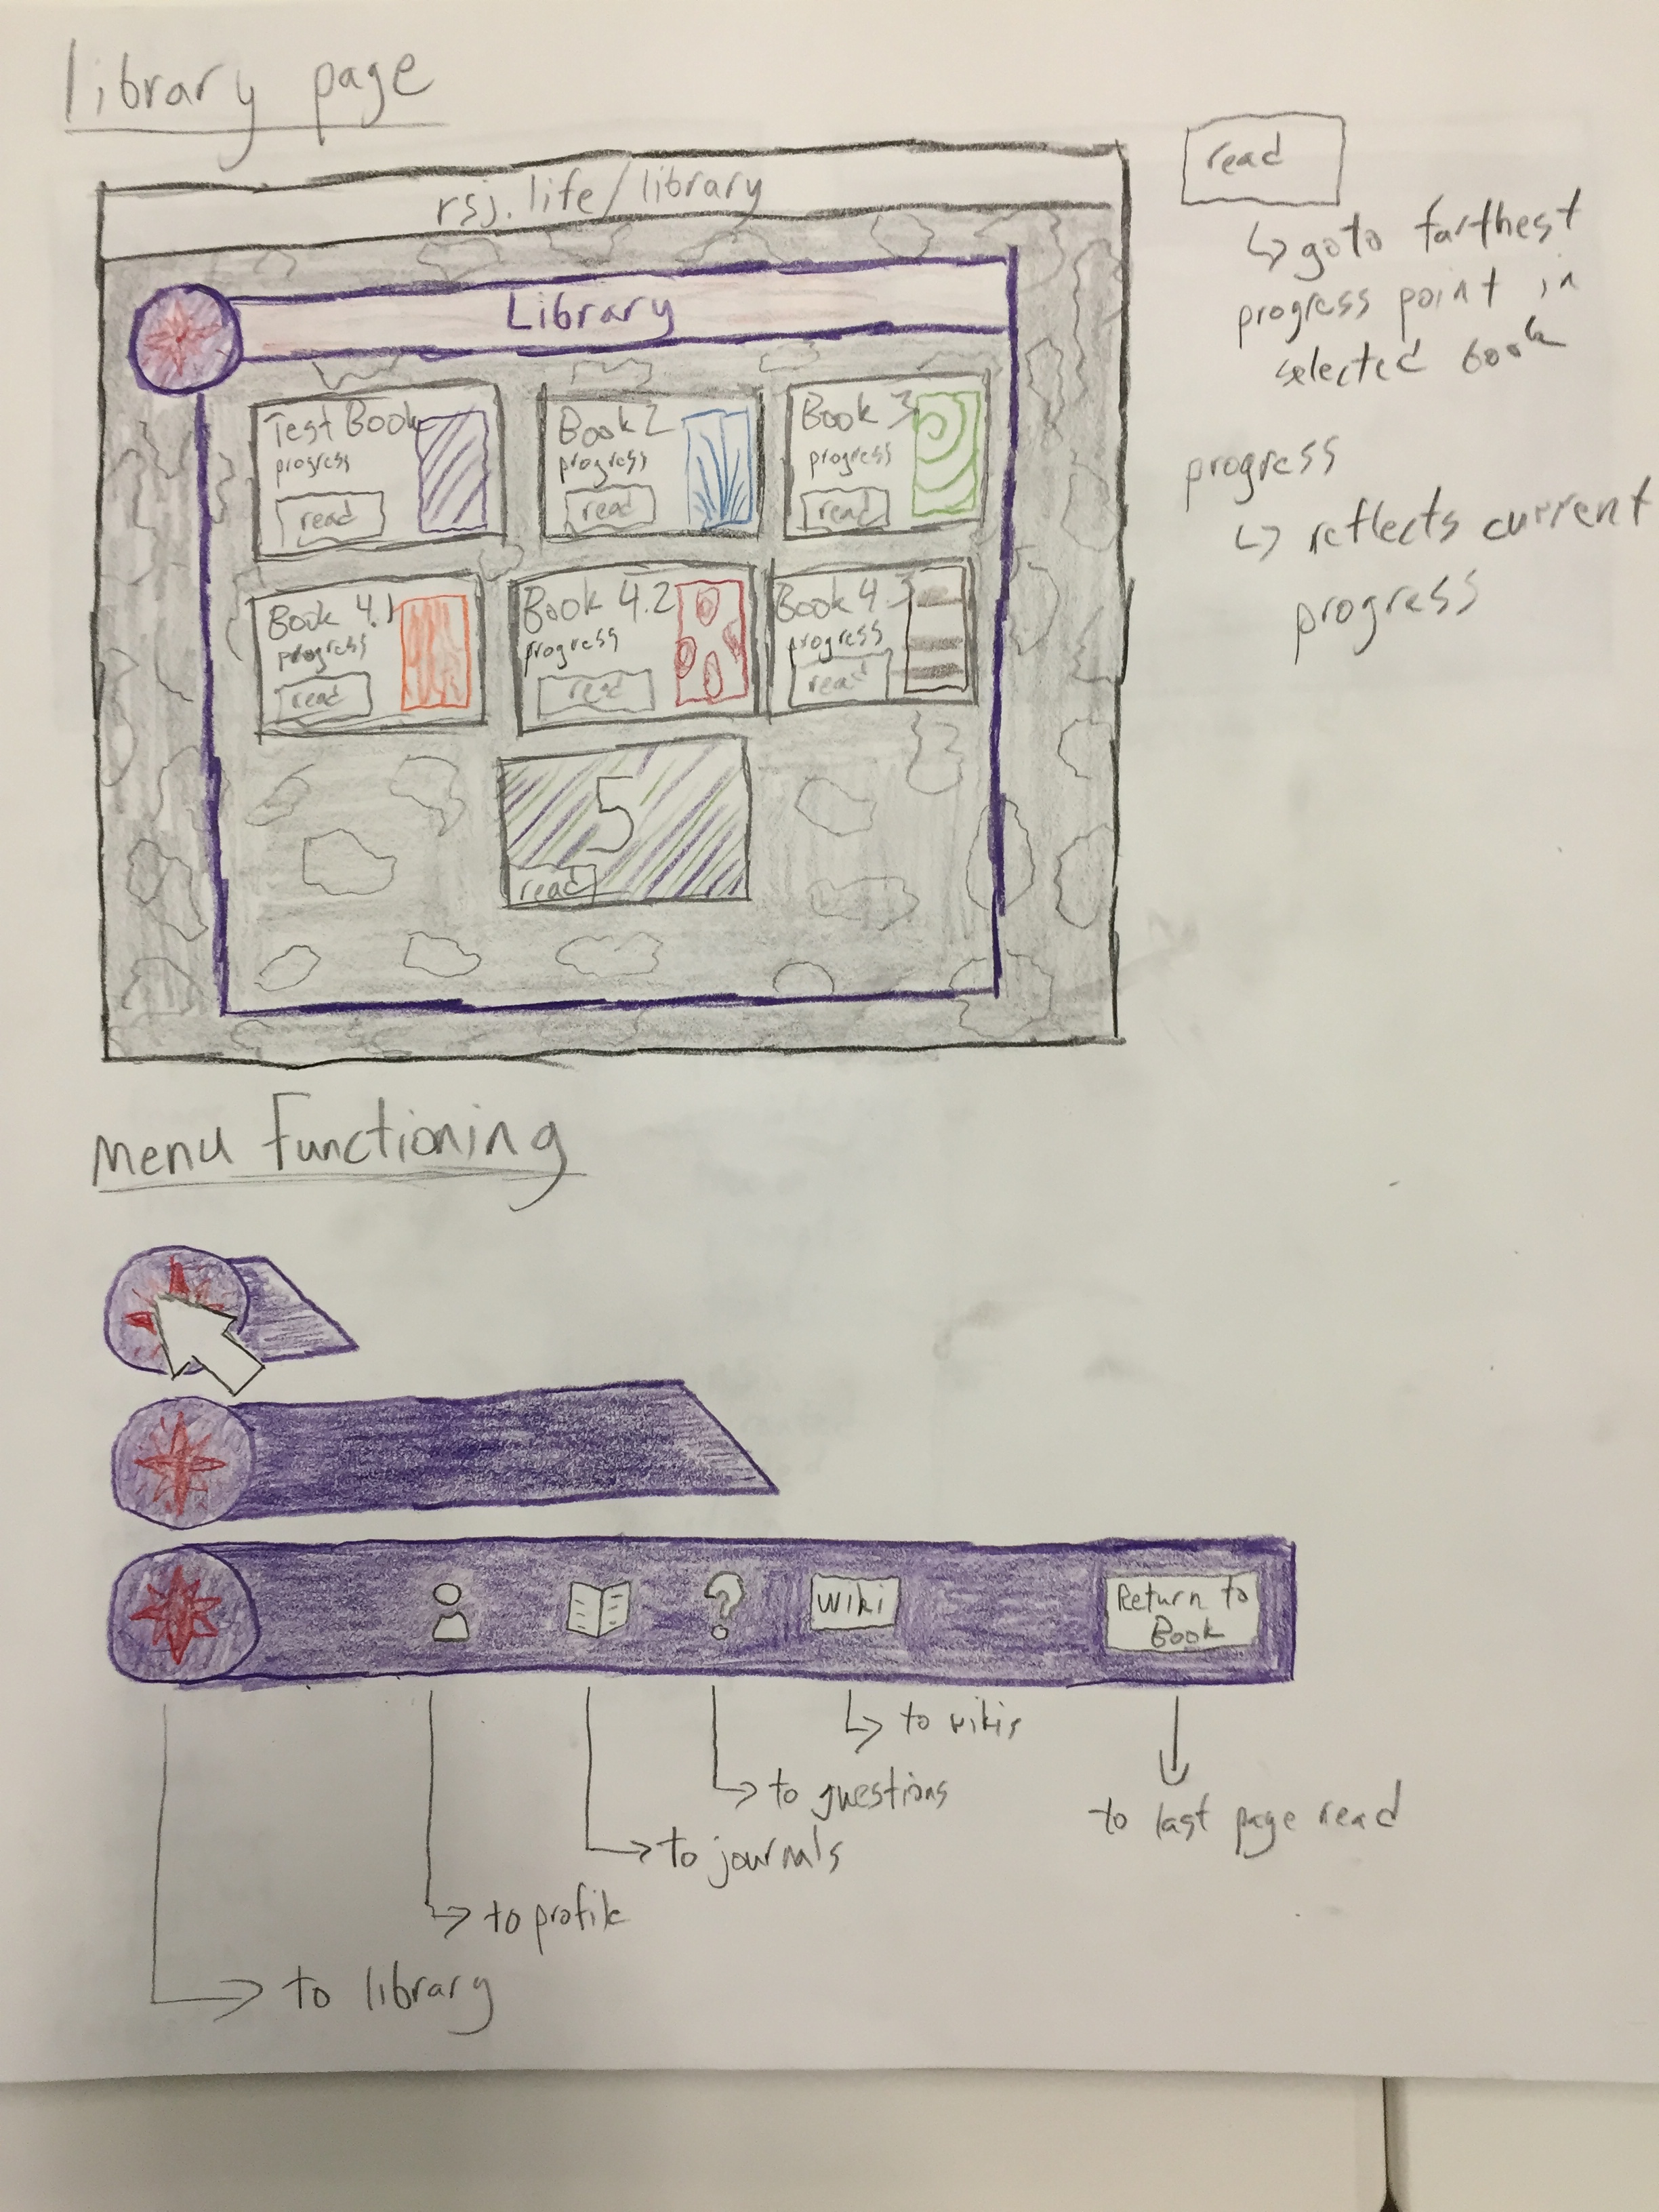 library page
rsj.life/library
Library
Test Book
progress
read
Book 2
progress
read
Book 3
progress
read
Book 4.1
progress
read
Book 4.2
progress
read
Book 4.3
progress
read
5
read
read
↳ goto farthest
progress point in
selected book
progress
↳ reflects current
progress
Menu Functioning
?
wiki
Return to
Book
to wikis
to questions
to last page read
to journals
to profile
to library